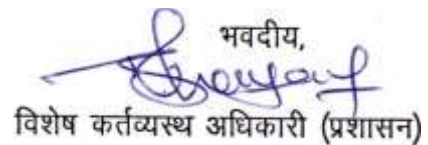 भवदीय,
विशेष कर्तव्यस्थ अधिकारी (प्रशासन)